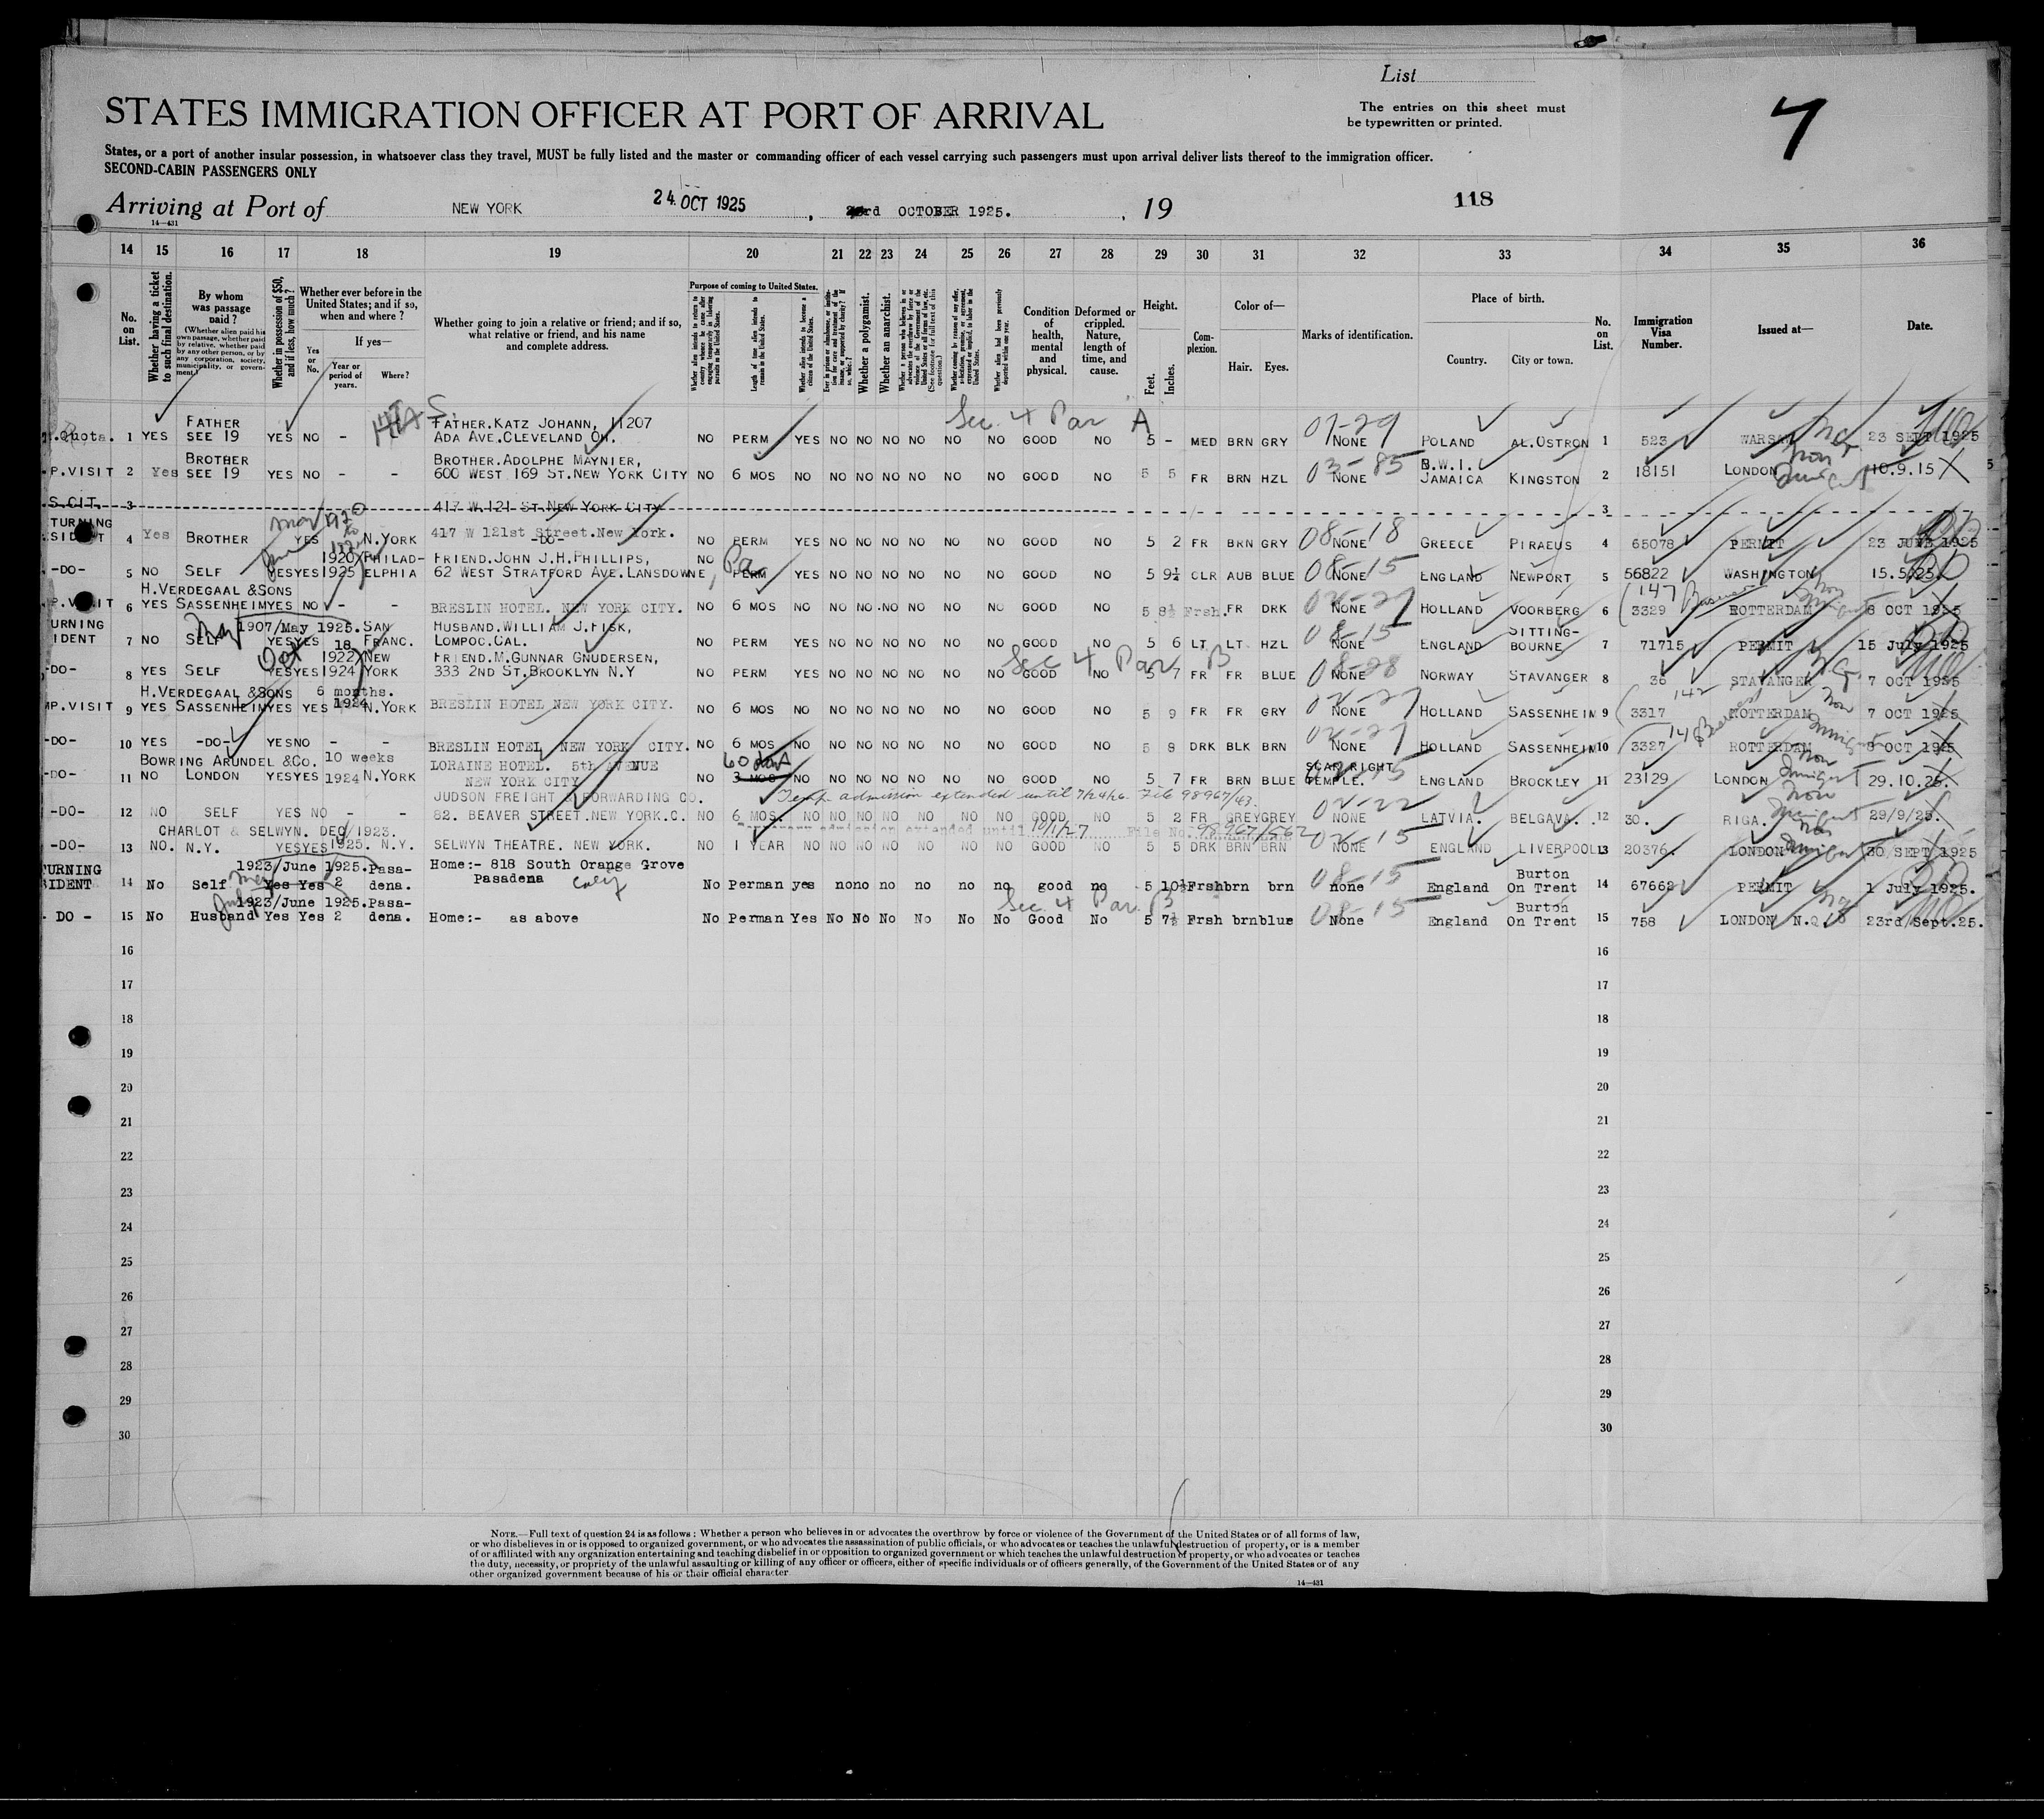 List
STATES IMMIGRATION OFFICER AT PORT OF ARRIVAL
The entries on this sheet must
be typewritten or printed.
7
States, or a port of another insular possession, in whatsoever class they travel, MUST be fully listed and the master or commanding officer of each vessel carrying such passengers must upon arrival deliver lists thereof to the immigration officer.
SECOND-CABIN PASSENGERS ONLY
Arriving at Port of NEW YORK 24. OCT 1925, rd OCTOBER 1925. , 19 118
14—431
14 15 16 17 18 19 20 21 22 23 24 25 26 27 28 29 30 31 32 33 34 35 36
No. on List.
Whether having a ticket to such final destination.
By whom was passage paid?
(Whether alien paid his own passage, whether paid by relative, whether paid by any other person, or by any corporation, society, municipality, or government.)
Whether in possession of $50, and if less, how much?
Whether ever before in the United States; and if so, when and where?
If yes—
Yes or No.
Year or period of years.
Where?
Whether going to join a relative or friend; and if so, what relative or friend, and his name and complete address.
Purpose of coming to United States.
Length of time alien intends to remain in the United States.
Whether alien intends to become a citizen of the United States.
Whether a polygamist.
Whether an anarchist.
Condition of health, mental and physical.
Deformed or crippled. Nature, length of time, and cause.
Height.
Feet.
Inches.
Complexion.
Color of—
Hair. Eyes.
Marks of identification.
Place of birth.
Country. City or town.
No. on List.
Immigration Visa Number.
Issued at—
Date.
Sec 4 Par A
FATHER FATHER.KATZ JOHANN, 11207
.Quota. 1 YES SEE 19 YES NO - ADA AVE.CLEVELAND OH. NO PERM YES NO NO NO NO NO NO GOOD NO 5 - MED BRN GRY 07-29 NONE POLAND AL.OSTRON 1 523 WARSAW 23 SEPT 1925
BROTHER BROTHER.ADOLPHE MAYNIER, B.W.I.
P.VISIT 2 Yes SEE 19 YES NO - - 600 WEST 169 ST.NEW YORK CITY NO 6 MOS NO NO NO NO NO NO NO GOOD NO 5 5 FR BRN HZL 03-85 NONE JAMAICA KINGSTON 2 18151 LONDON 10.9.15
S.CIT. 3 417 W.121 ST.NEW YORK CITY 3
TURNING 417 W 121st Street.New York.
4 Yes BROTHER YES N.YORK -DO- NO PERM YES NO NO NO NO NO NO GOOD NO 5 2 FR BRN GRY 08-18 NONE GREECE PIRAEUS 4 65078 PERMIT 23 JUNE 1925
1920 PHILAD- FRIEND.JOHN J.H.PHILLIPS, NO Pa
-DO- 5 NO SELF YES YES 1925 ELPHIA 62 WEST STRATFORD AVE.LANSDOWNE, PERM YES NO NO NO NO NO NO GOOD NO 5 9½ CLR AUB BLUE 08-15 NONE ENGLAND NEWPORT 5 56822 WASHINGTON 15.5.25.
H.VERDEGAAL &SONS
P.VISIT 6 YES SASSENHEIM YES NO - - BRESLIN HOTEL. NEW YORK CITY. NO 6 MOS NO NO NO NO NO NO NO GOOD NO 5 8½ Frsh. FR DRK NONE HOLLAND VOORBERG 6 3329 147 ROTTERDAM 8 OCT 1925
URNING 1907/May 1925. SAN HUSBAND.WILLIAM J.FISK, SITTING-
IDENT 7 NO SELF YES YES 18 FRANC. LOMPOC.CAL. NO PERM YES NO NO NO NO NO NO GOOD NO 5 6 LT LT HZL 08-15 NONE ENGLAND BOURNE 7 71715 PERMIT 15 July 1925
Oct 1922 NEW FRIEND.M.GUNNAR GNUDERSEN, Sec 4 Par B
-DO- 8 YES SELF YES YES 1924 YORK 333 2ND ST.BROOKLYN N.Y NO PERM YES NO NO NO NO NO NO GOOD NO 5 7 FR FR BLUE 08-28 NONE NORWAY STAVANGER 8 36 STAVANGER 7 OCT 1925
H.VERDEGAAL &SONS 6 months.
MP.VISIT 9 YES SASSENHEIM YES YES 1924 N.YORK BRESLIN HOTEL NEW YORK CITY. NO 6 MOS NO NO NO NO NO NO NO GOOD NO 5 9 FR FR GRY NONE HOLLAND SASSENHEIM 9 3317 142 ROTTERDAM 7 OCT 1925
-DO- 10 YES -DO- YES NO - - BRESLIN HOTEL NEW YORK CITY. NO 6 MOS NO NO NO NO NO NO NO GOOD NO 5 8 DRK BLK BRN NONE HOLLAND SASSENHEIM 10 3327 ROTTERDAM 8 OCT 1925
BOWRING ARUNDEL &CO. 10 weeks LORAINE HOTEL. 5th AVENUE 60 SCAR RIGHT
-DO- 11 NO LONDON YES YES 1924 N.YORK NEW YORK CITY NO 3 MOS NO NO NO NO NO NO NO GOOD NO 5 7 FR BRN BLUE TEMPLE. ENGLAND BROCKLEY 11 23129 LONDON 29.10.25.
JUDSON FREIGHT & FORWARDING CO. Temp. admission extended until 7/24/26. File 98967/43.
-DO- 12 NO SELF YES NO - - 82. BEAVER STREET.NEW YORK.C. NO 6 MOS. NO NO NO NO NO NO NO GOOD NO 5 2 FR GREY GREY NONE LATVIA. BELGAVA. 12 30. RIGA. 29/9/25.
CHARLOT & SELWYN. DEC/1923. Temporary admission extended until 10/1/27 File No. 98967/562
-DO- 13 NO. N.Y. YES YES 1925. N.Y. SELWYN THEATRE. NEW YORK. NO 1 YEAR NO NO NO NO NO NO NO GOOD NO 5 5 DRK BRN BRN NONE ENGLAND LIVERPOOL 13 20376. LONDON 30 SEPT 1925
TURNING 1923/June 1925. Pasa- Home:- 818 South Orange Grove Burton
SIDENT 14 No Self Yes Yes 2 dena. Pasadena Calif No Perman yes no no no no no no good no 5 10½ Frsh brn brn 08-15 none England On Trent 14 67662 PERMIT 1 July 1925.
1923/June 1925. Pasa- Sec 4 Par. B Burton
- DO - 15 No Husband Yes Yes 2 dena. Home:- as above No Perman Yes No No No No No No Good No 5 7½ Frsh brn blue 08-15 None England On Trent 15 758 LONDON N.Q. 23rd/Sept.25.
16 16
17 17
18 18
19 19
20 20
21 21
22 22
23 23
24 24
25 25
26 26
27 27
28 28
29 29
30 30
NOTE.—Full text of question 24 is as follows: Whether a person who believes in or advocates the overthrow by force or violence of the Government of the United States or of all forms of law,
or who disbelieves in or is opposed to organized government, or who advocates the assassination of public officials, or who advocates or teaches the unlawful destruction of property, or is a member
of or affiliated with any organization entertaining and teaching disbelief in or opposition to organized government or which teaches the unlawful destruction of property, or who advocates or teaches
the duty, necessity, or propriety of the unlawful assaulting or killing of any officer or officers, either of specific individuals or of officers generally, of the Government of the United States or of any
other organized government because of his or their official character
14—431